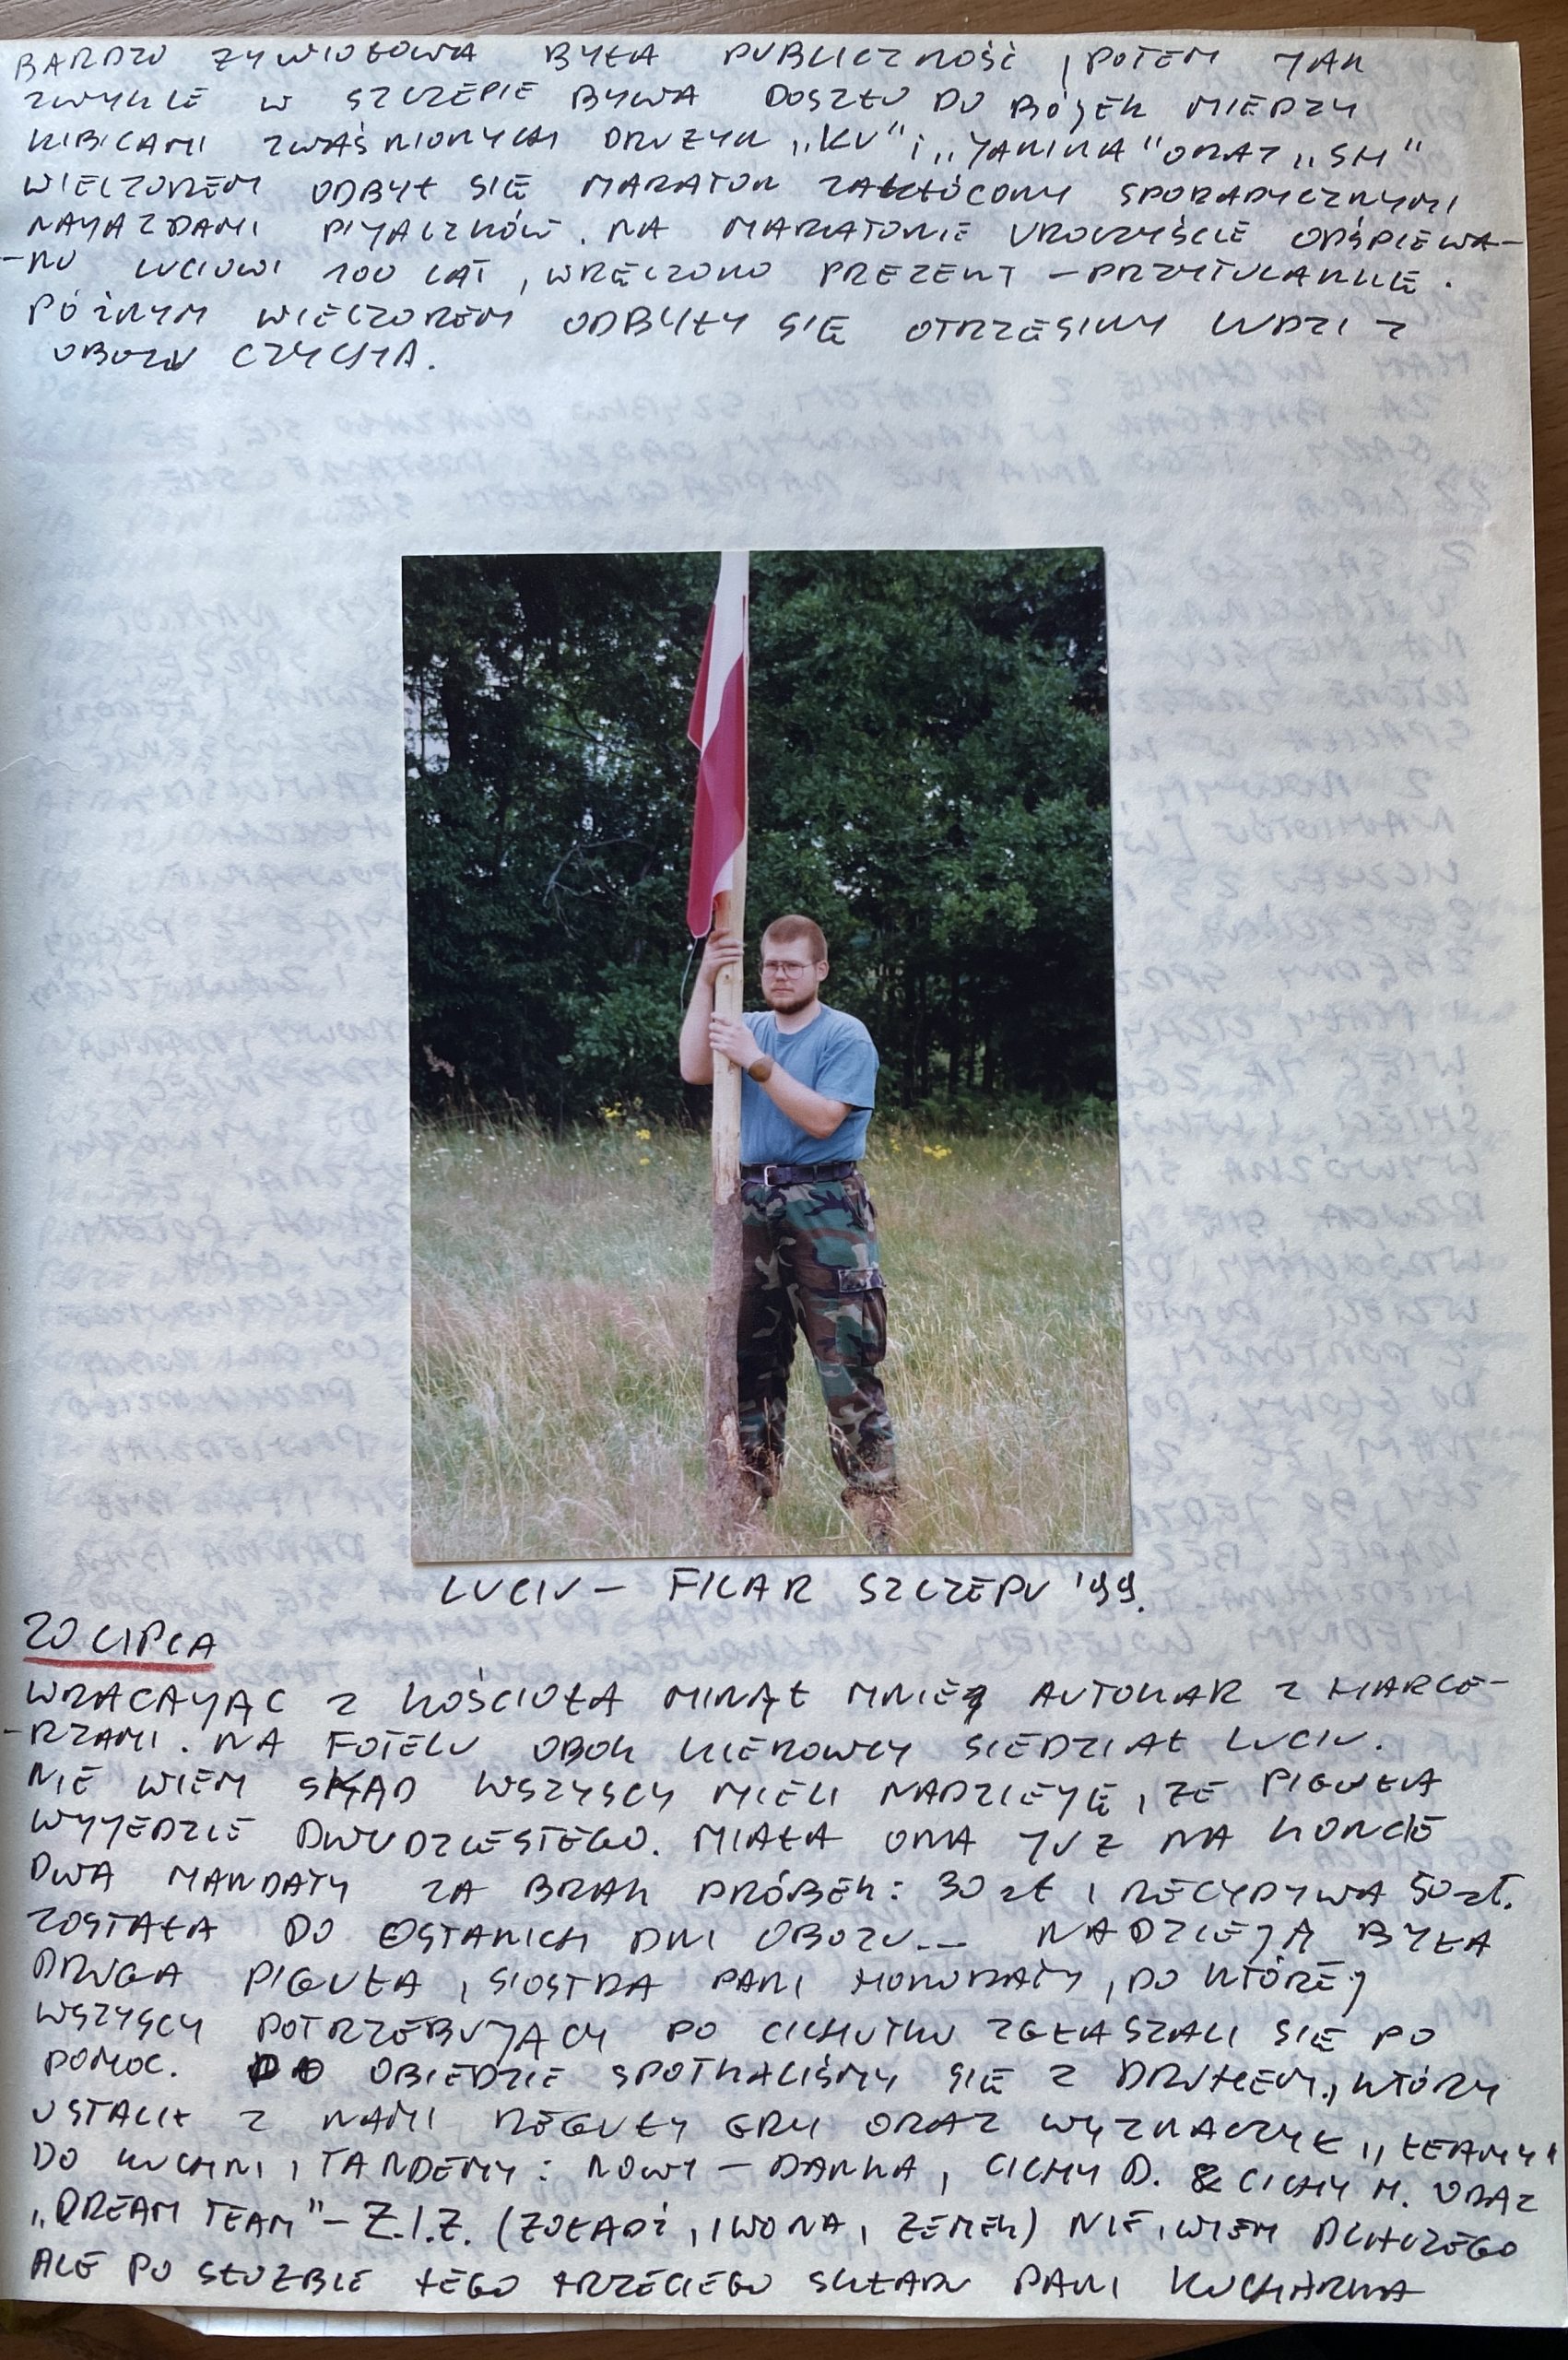 BARDZO ŻYWIOŁOWA BYŁA PUBLICZNOŚĆ, POTEM JAK
ZWYKLE W SZCZEPIE BYWA DOSZŁO DO BÓJEK MIĘDZY
KIBICAMI ZWAŚNIONYCH DRUŻYN „KU" i „JANINA" ORAZ „SM"
WIECZOREM ODBYŁ SIĘ MARATON ZAKŁÓCONY SPORADYCZNYMI
NAJAZDAMI PIJACZKÓW. NA MARATONIE UROCZYŚCIE ODŚPIEWA-
-NO LUCIOWI 100 LAT, WRĘCZONO PREZENT – PRZYTULANKĘ.
PÓŹNYM WIECZOREM ODBYŁY SIĘ OTRZĘSINY LUDZI Z
OBOZU CZYCHA.
LUCIU – FILAR SZCZEPU '99.
20 LIPCA
WRACAJĄC Z KOŚCIOŁA MINĄŁ MNIE AUTOKAR Z HARCE-
-RZAMI. NA FOTELU OBOK KIEROWCY SIEDZIAŁ LUCIU.
NIE WIEM SKĄD WSZYSCY MIELI NADZIEJĘ, ŻE PIGUŁA
WYJEDZIE DWUDZIESTEGO. MIAŁA ONA JUŻ NA KONCIE
DWA MANDATY ZA BRAK PRÓBEK: 30 zł I RECYDYWA 50 zł.
ZOSTAŁA DO OSTANICH DNI OBOZU... NADZIEJĄ BYŁA
DRUGA PIGUŁA, SIOSTRA PANI HONORATY, DO KTÓREJ
WSZYSCY POTRZEBUJĄCY PO CICHUTKU ZGŁASZALI SIĘ PO
POMOC. PO OBIEDZIE SPOTKALIŚMY SIĘ Z DRUHEM, KTÓRY
USTALIŁ Z NAMI REGUŁY GRY ORAZ WYZNACZYŁ „TEAMY"
DO KUCHNI, TANDEMY: NOWY – DANKA, CICHY D. & CICHY M. ORAZ
„DREAM TEAM" – Z.I.Z. (ŻOŁĄDŹ, IWONA, ZEMEK) NIE WIEM DLACZEGO
ALE PO SŁUŻBIE TEGO TRZECIEGO SKŁADU PANI KUCHARKA